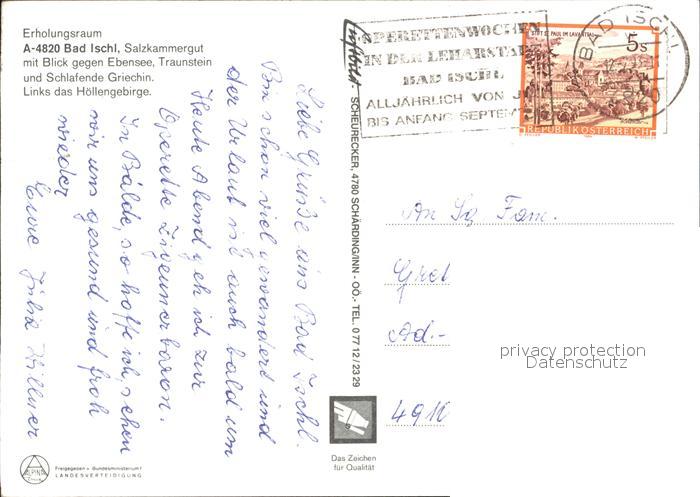 Erholungsraum
A-4820 Bad Ischl, Salzkammergut
mit Blick gegen Ebensee, Traunstein
und Schlafende Griechin.
Links das Höllengebirge.
Liebe Grüße aus Bad Ischl.
Bin schon viel gewandert und
der Urlaub ist auch bald um
Heute Abend geh ich zur
Operette Zigeunerbaron.
In Bälde, so hoffe ich, sehen
wir uns gesund und froh
wieder
Eure Julia
ALPINA
Druck
Freigegeben v. Bundesministerium f.
LANDESVERTEIDIGUNG
Luftbild: SCHEURECKER, 4780 SCHÄRDING/INN - OÖ. - TEL. 0 77 12 / 23 29
Das Zeichen
für Qualität
OPERETTENWOCHEN
IN DER LEHARSTADT
BAD ISCHL
ALLJÄHRLICH VON
BIS ANFANG SEPTEMBER
STIFT ST. PAUL IM LAVANTTAL
5 S
REPUBLIK ÖSTERREICH
BAD ISCHL
An Sg. Fam.
Gret
Ad.-
4910
privacy protection
Datenschutz